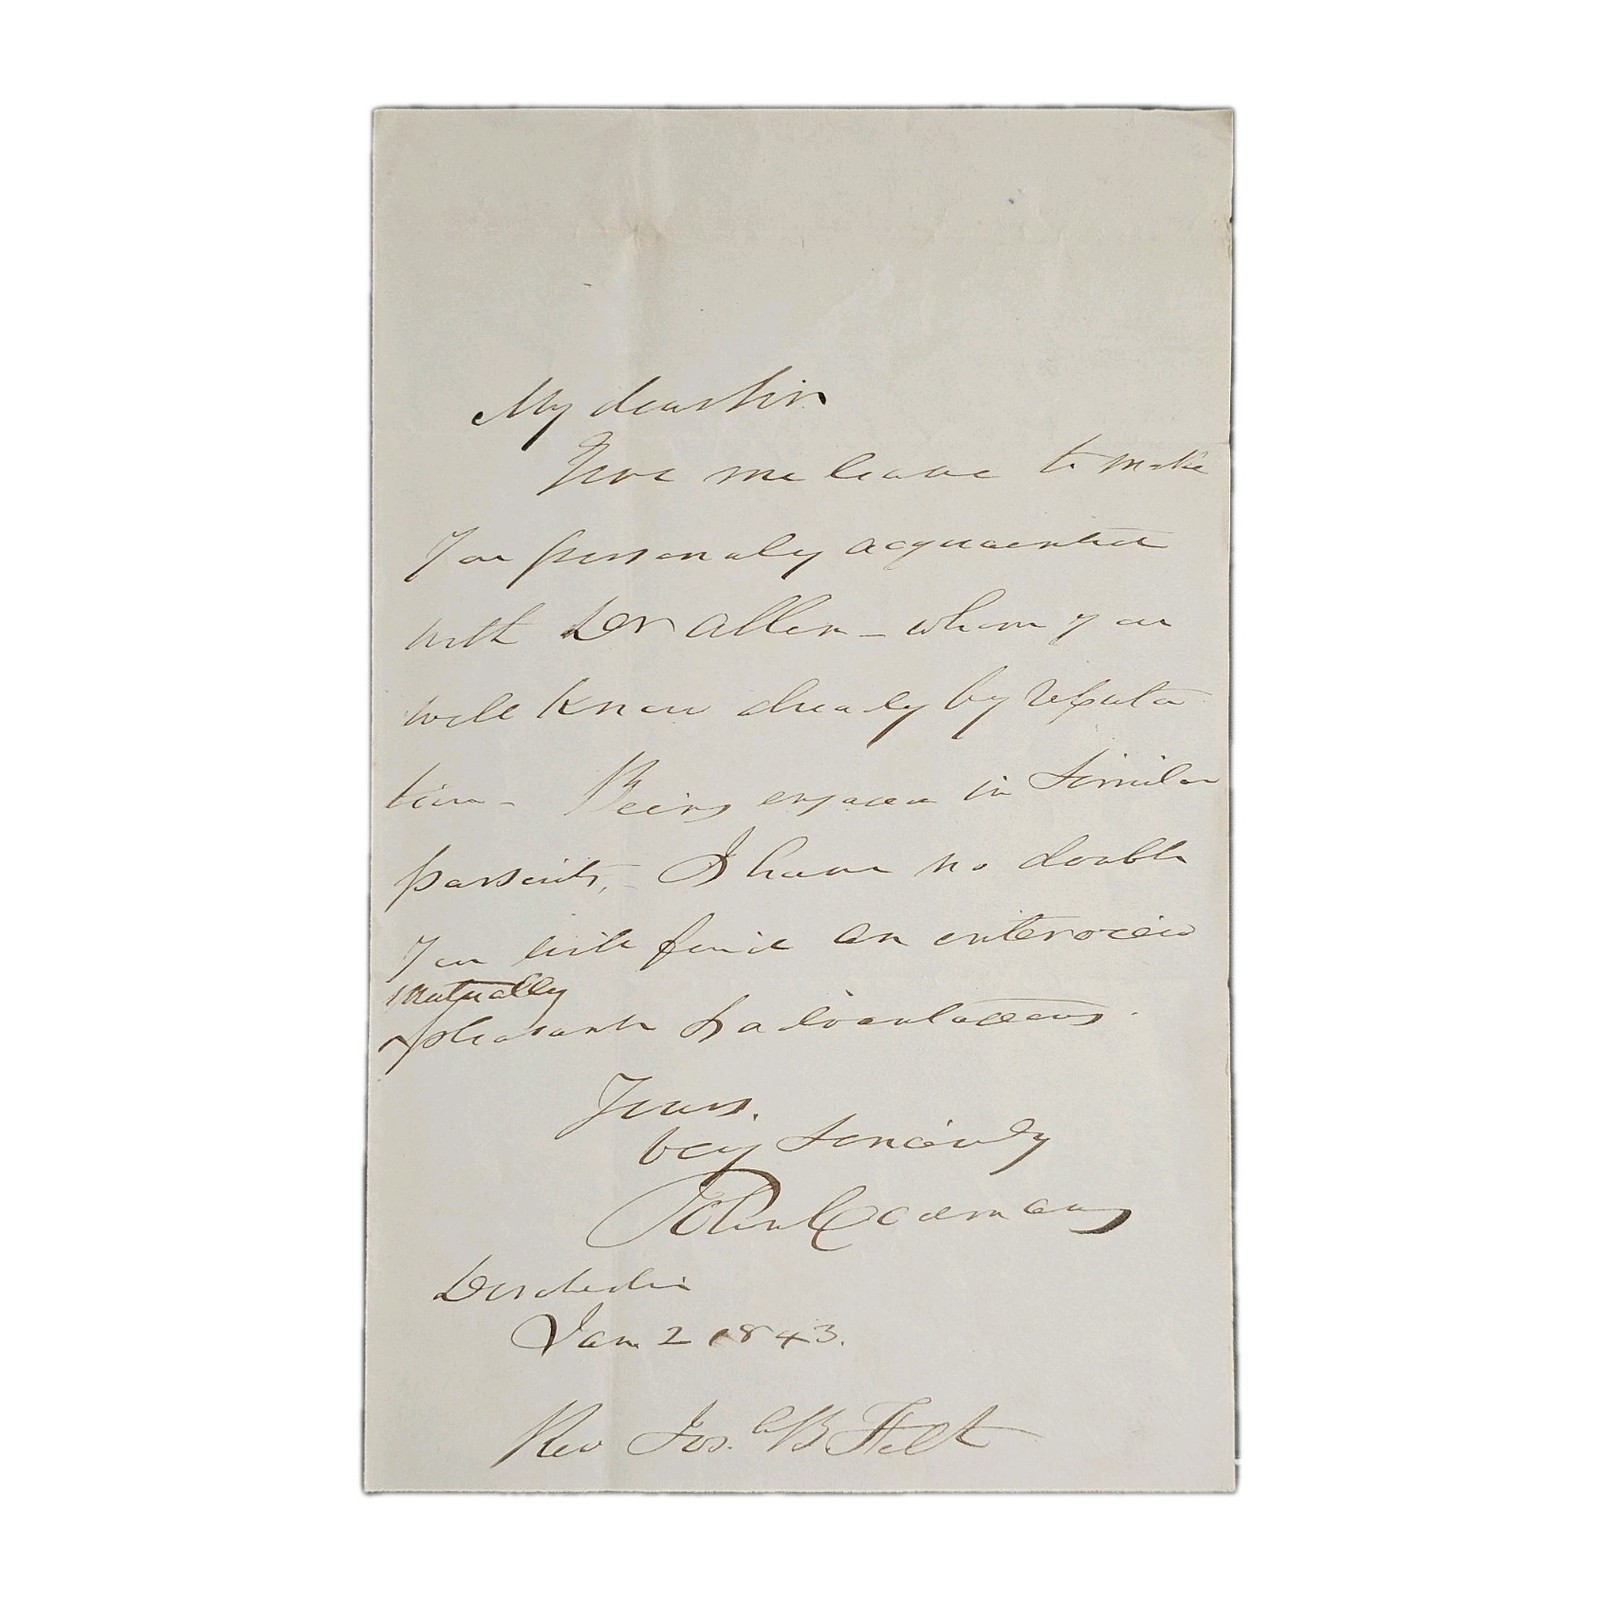 My dear Sir
Give me leave to make
you personaly acquainted
with Dr Allen - whom you
well know already by reputa
tion - Being engaged in similar
pursuits, - I have no doubt
you will find an interview
mutually
^ pleasant & advantageous.
Yours.
very sincerely
John Codman
Dorchester
Jan. 2 1843.
Rev Jos.h B Felt